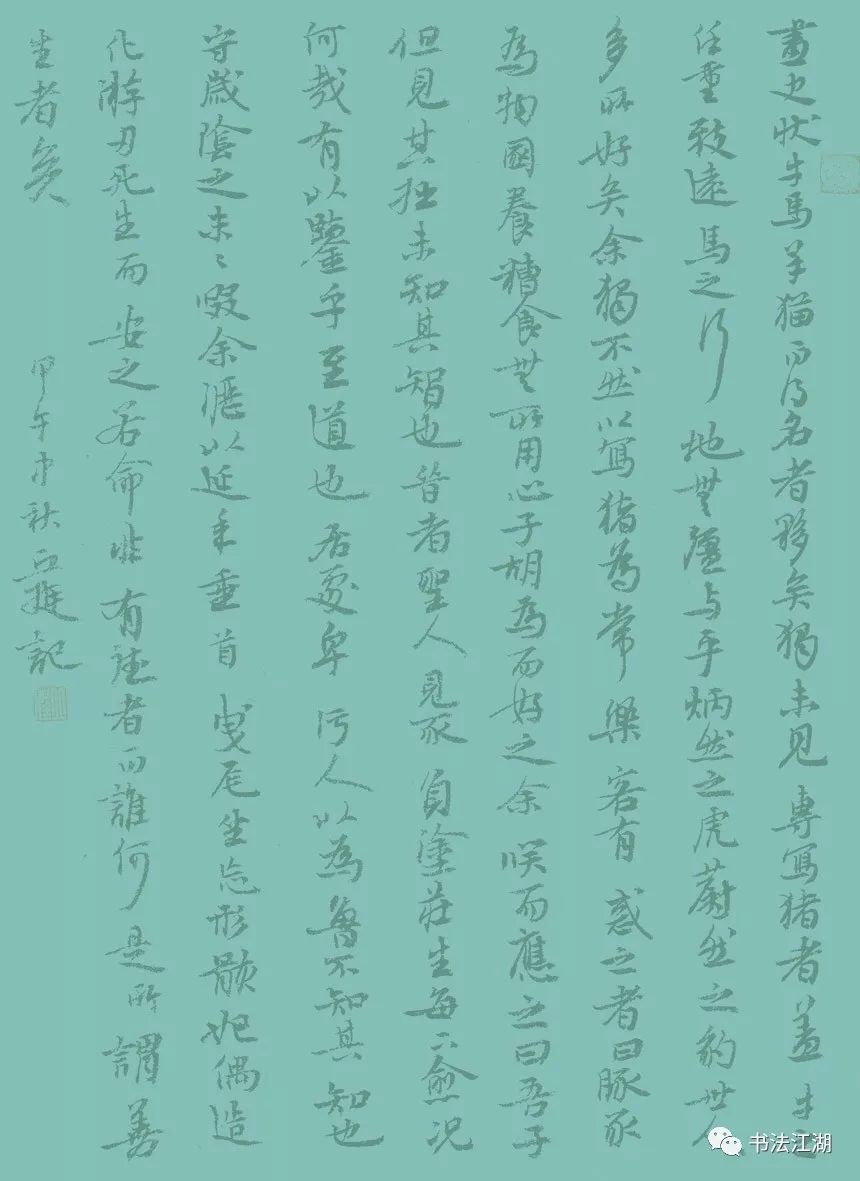 畫史狀牛馬羊猫而得名者夥矣獨未見專寫猪者蓋牛之
任重致遠馬之行地無疆与乎炳然之虎蔚然之豹世人
多所好矣余獨不然以寫猪為常樂客有惑之者曰豚豕
為物圂養糟食無所用心子胡為而好之余咲而應之曰吾子
但見其拙未知其智也昔者聖人見豕負塗莊生每下愈况
何哉有以鑒乎至道也居處卑污人以為魯不知其知也
守歲陰之末々啜余瀝以延年垂首曳尾坐忘形骸妃偶造
化游刃死生而安之若命非有德者而誰何是所謂善
生者矣
甲午中秋記
书法江湖